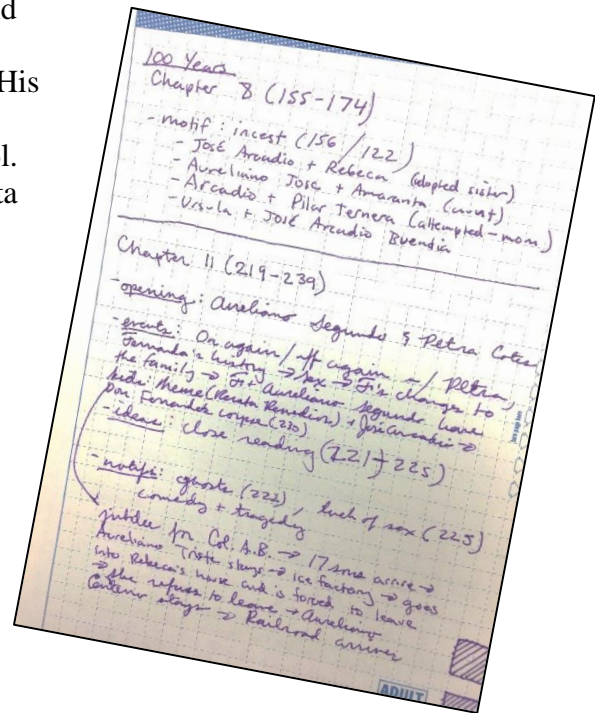 His
100 Years
Chapter 8 (155-174)
- motif: incest (156/122)
- José Arcadio + Rebeca (adopted sister)
- Aureliano José + Amaranta (aunt)
- Arcadio + Pilar Ternera (attempted-mom)
- Ursula + José Arcadio Buendia
Chapter 11 (219-239)
- opening: Aureliano Segundo & Petra Cotes
- events: On again/off again w/ Petra,
Fernanda's history → sex → F's changes to
the family → F + Aureliano Segundo have
kids: Meme (Renata Remedios) + José Arcadio →
Don Fernando's corpse (230)
- ideas: close reading (221 + 225)
- motifs: ghosts (222), lack of sex (225)
comedy + tragedy
jubilee for Col. A.B. → 17 sons arrive →
Aureliano Triste stays → ice factory → goes
into Rebeca's house and is forced to leave
→ she refuses to leave → Aureliano
Centeno stays → Railroad arrives
ADULT